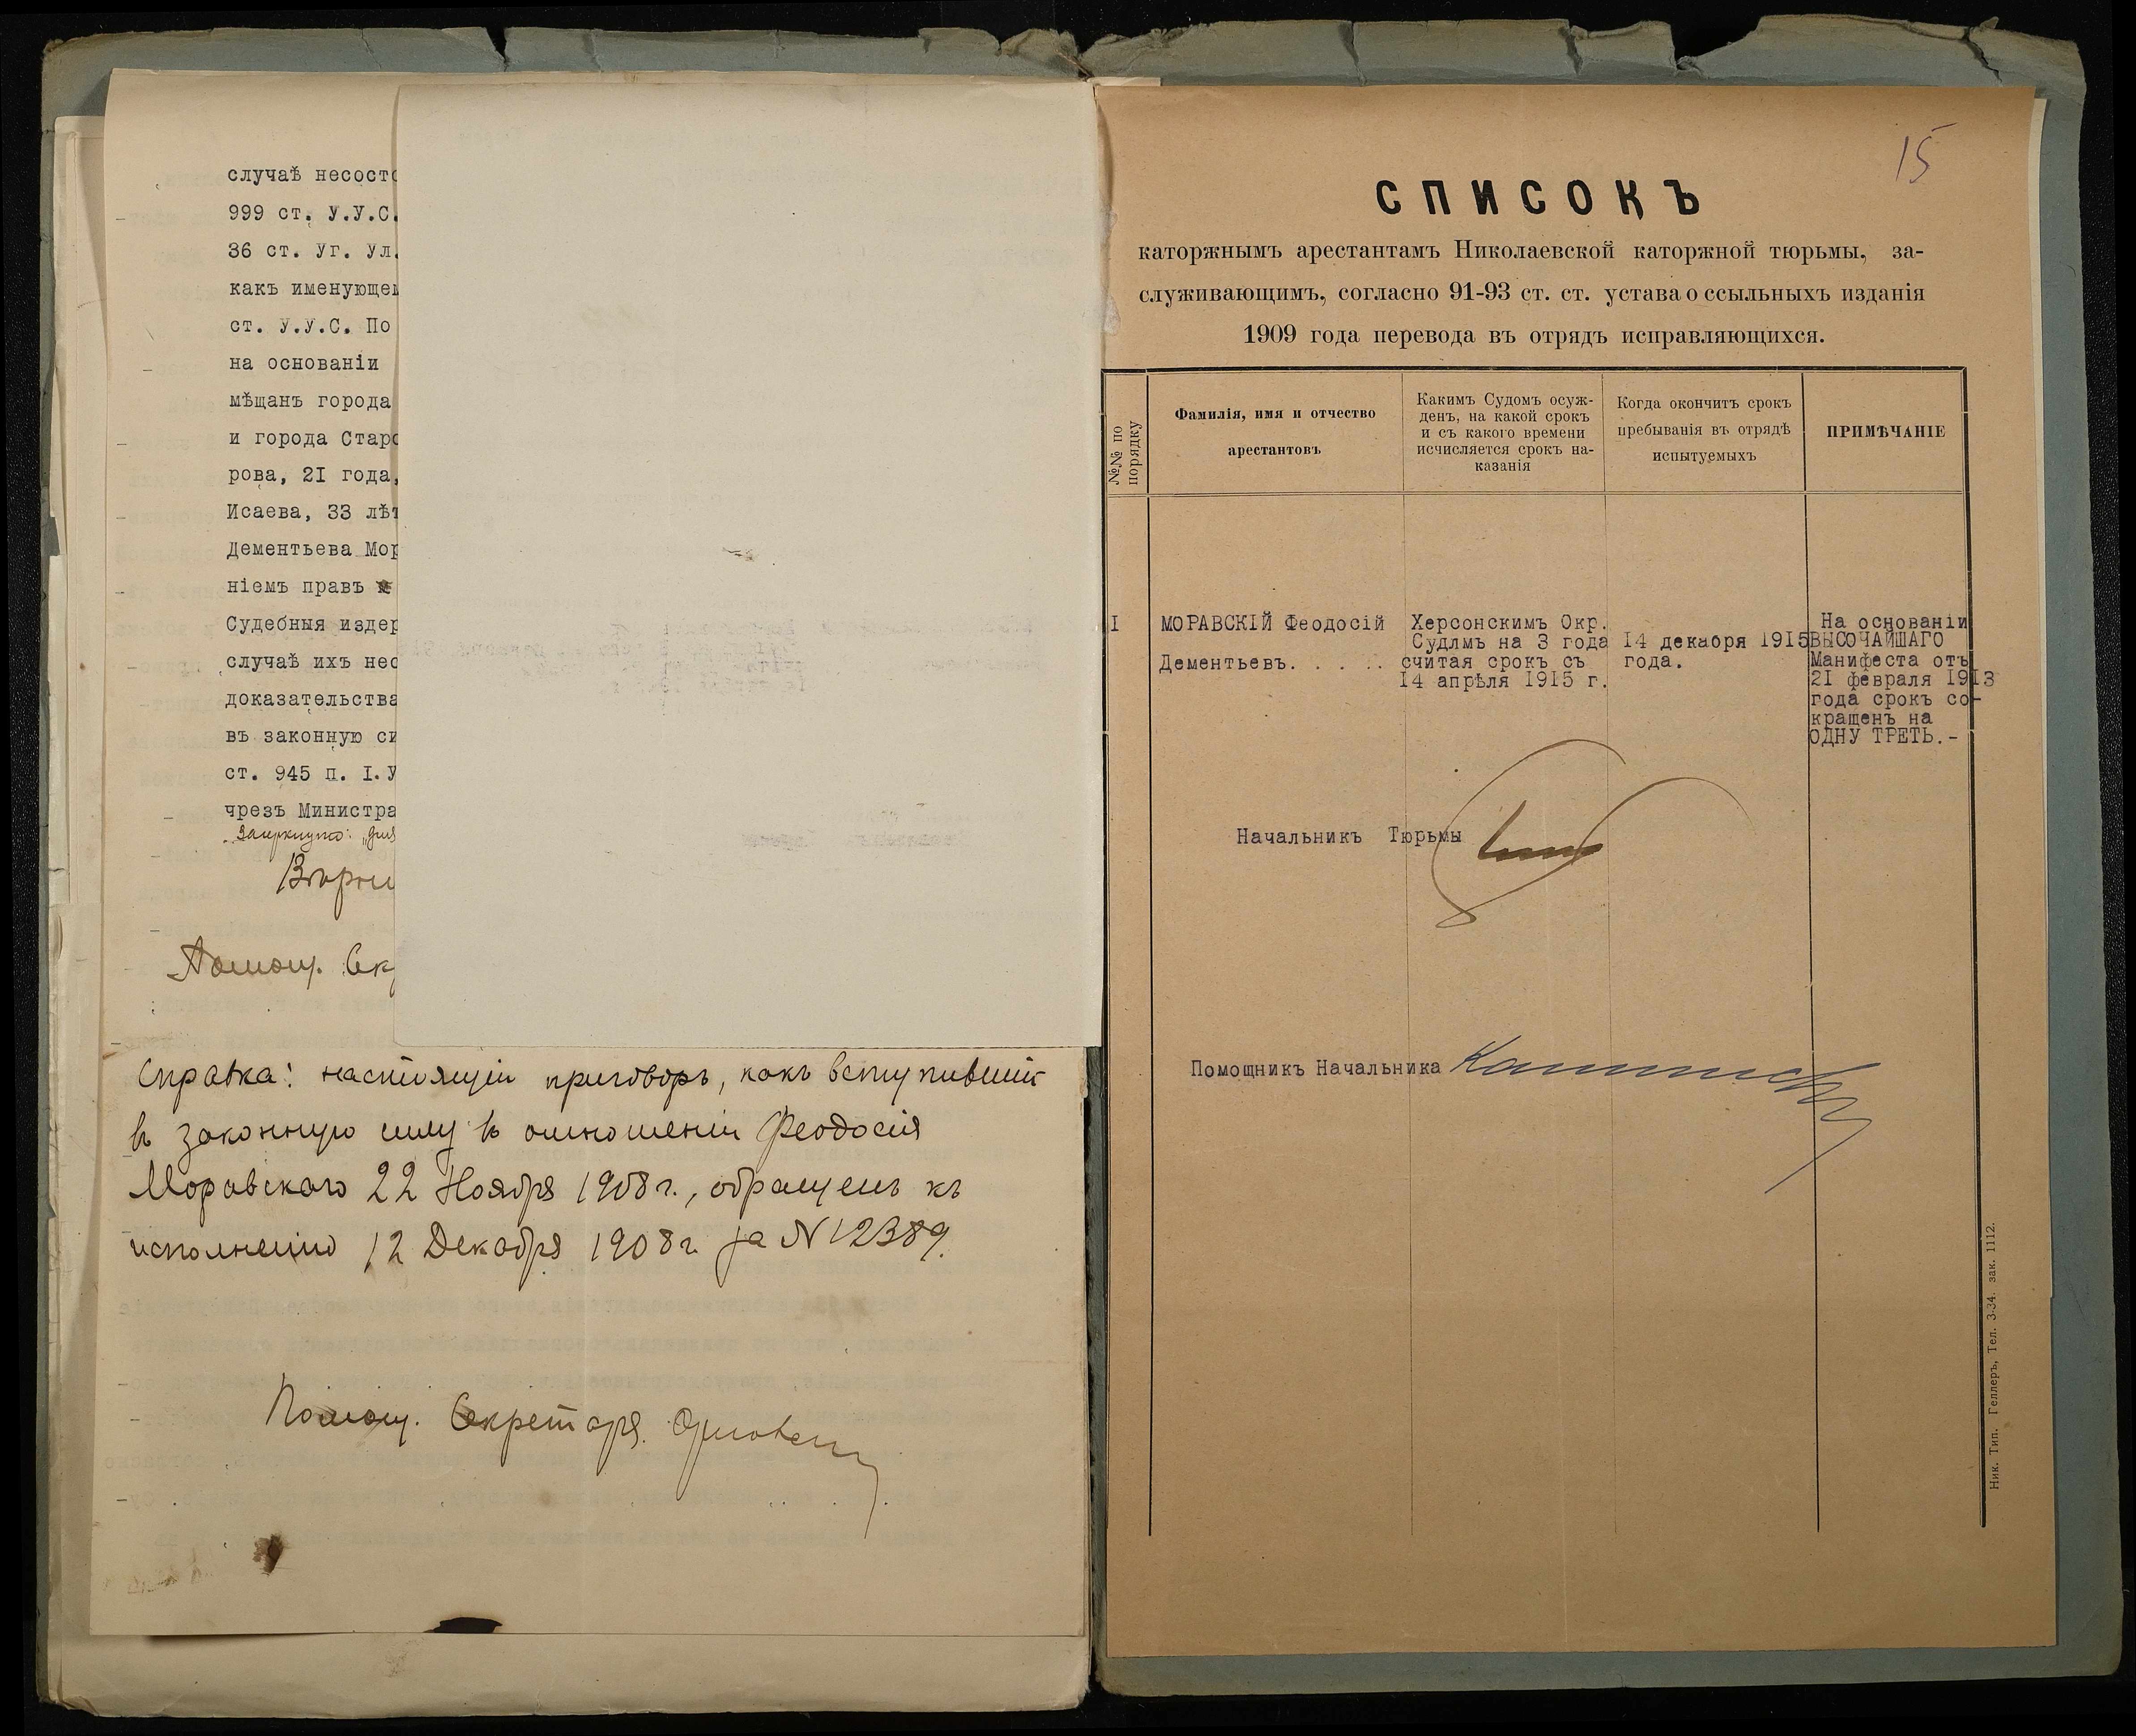 случаѣ несосто
999 ст. У.У.С.
36 ст. Уг. Ул.
какъ именующем
ст. У.У.С. По
на основаніи
мѣщанъ города
и города Старо
рова, 21 года,
Исаева, 33 лѣт
Дементьева Мор
ніемъ правъ
Судебныя издер
случаѣ ихъ нес
доказательства
въ законную си
ст. 945 п. I. У
чрезъ Министра
Зачеркнуто: „для
Вѣрно
Помощ. Сек
Справка: настоящій приговоръ, какъ вступившій
въ законную силу въ отношеніи Феодосія
Моравскаго 22 Ноября 1908 г., обращенъ къ
исполненію 12 Декабря 1908 г. за N 12389.
Помощ. Секретаря
15
СПИСОКЪ
каторжнымъ арестантамъ Николаевской каторжной тюрьмы, за-
служивающимъ, согласно 91-93 ст. ст. устава о ссыльныхъ изданія
1909 года перевода въ отрядъ исправляющихся.
№№ по
порядку
Фамилія, имя и отчество
арестантовъ
Какимъ Судомъ осуж-
денъ, на какой срокъ
и съ какого времени
исчисляется срокъ на-
казанія
Когда окончитъ срокъ
пребыванія въ отрядѣ
испытуемыхъ
ПРИМѢЧАНІЕ
I
МОРАВСКІЙ Феодосій
Дементьевъ. . . . .
Херсонскимъ Окр.
Судлмъ на 3 года
считая срокъ съ
14 апрѣля 1915 г.
14 декабря 1915
года.
На основаніи
ВЫСОЧАЙШАГО
Манифеста отъ
21 февраля 1913
года срокъ со-
кращенъ на
ОДНУ ТРЕТЬ.-
Начальникъ Тюрьмы
Помощникъ Начальника
Ник. Тип. Геллеръ, Тел. 3-34. зак. 1112.